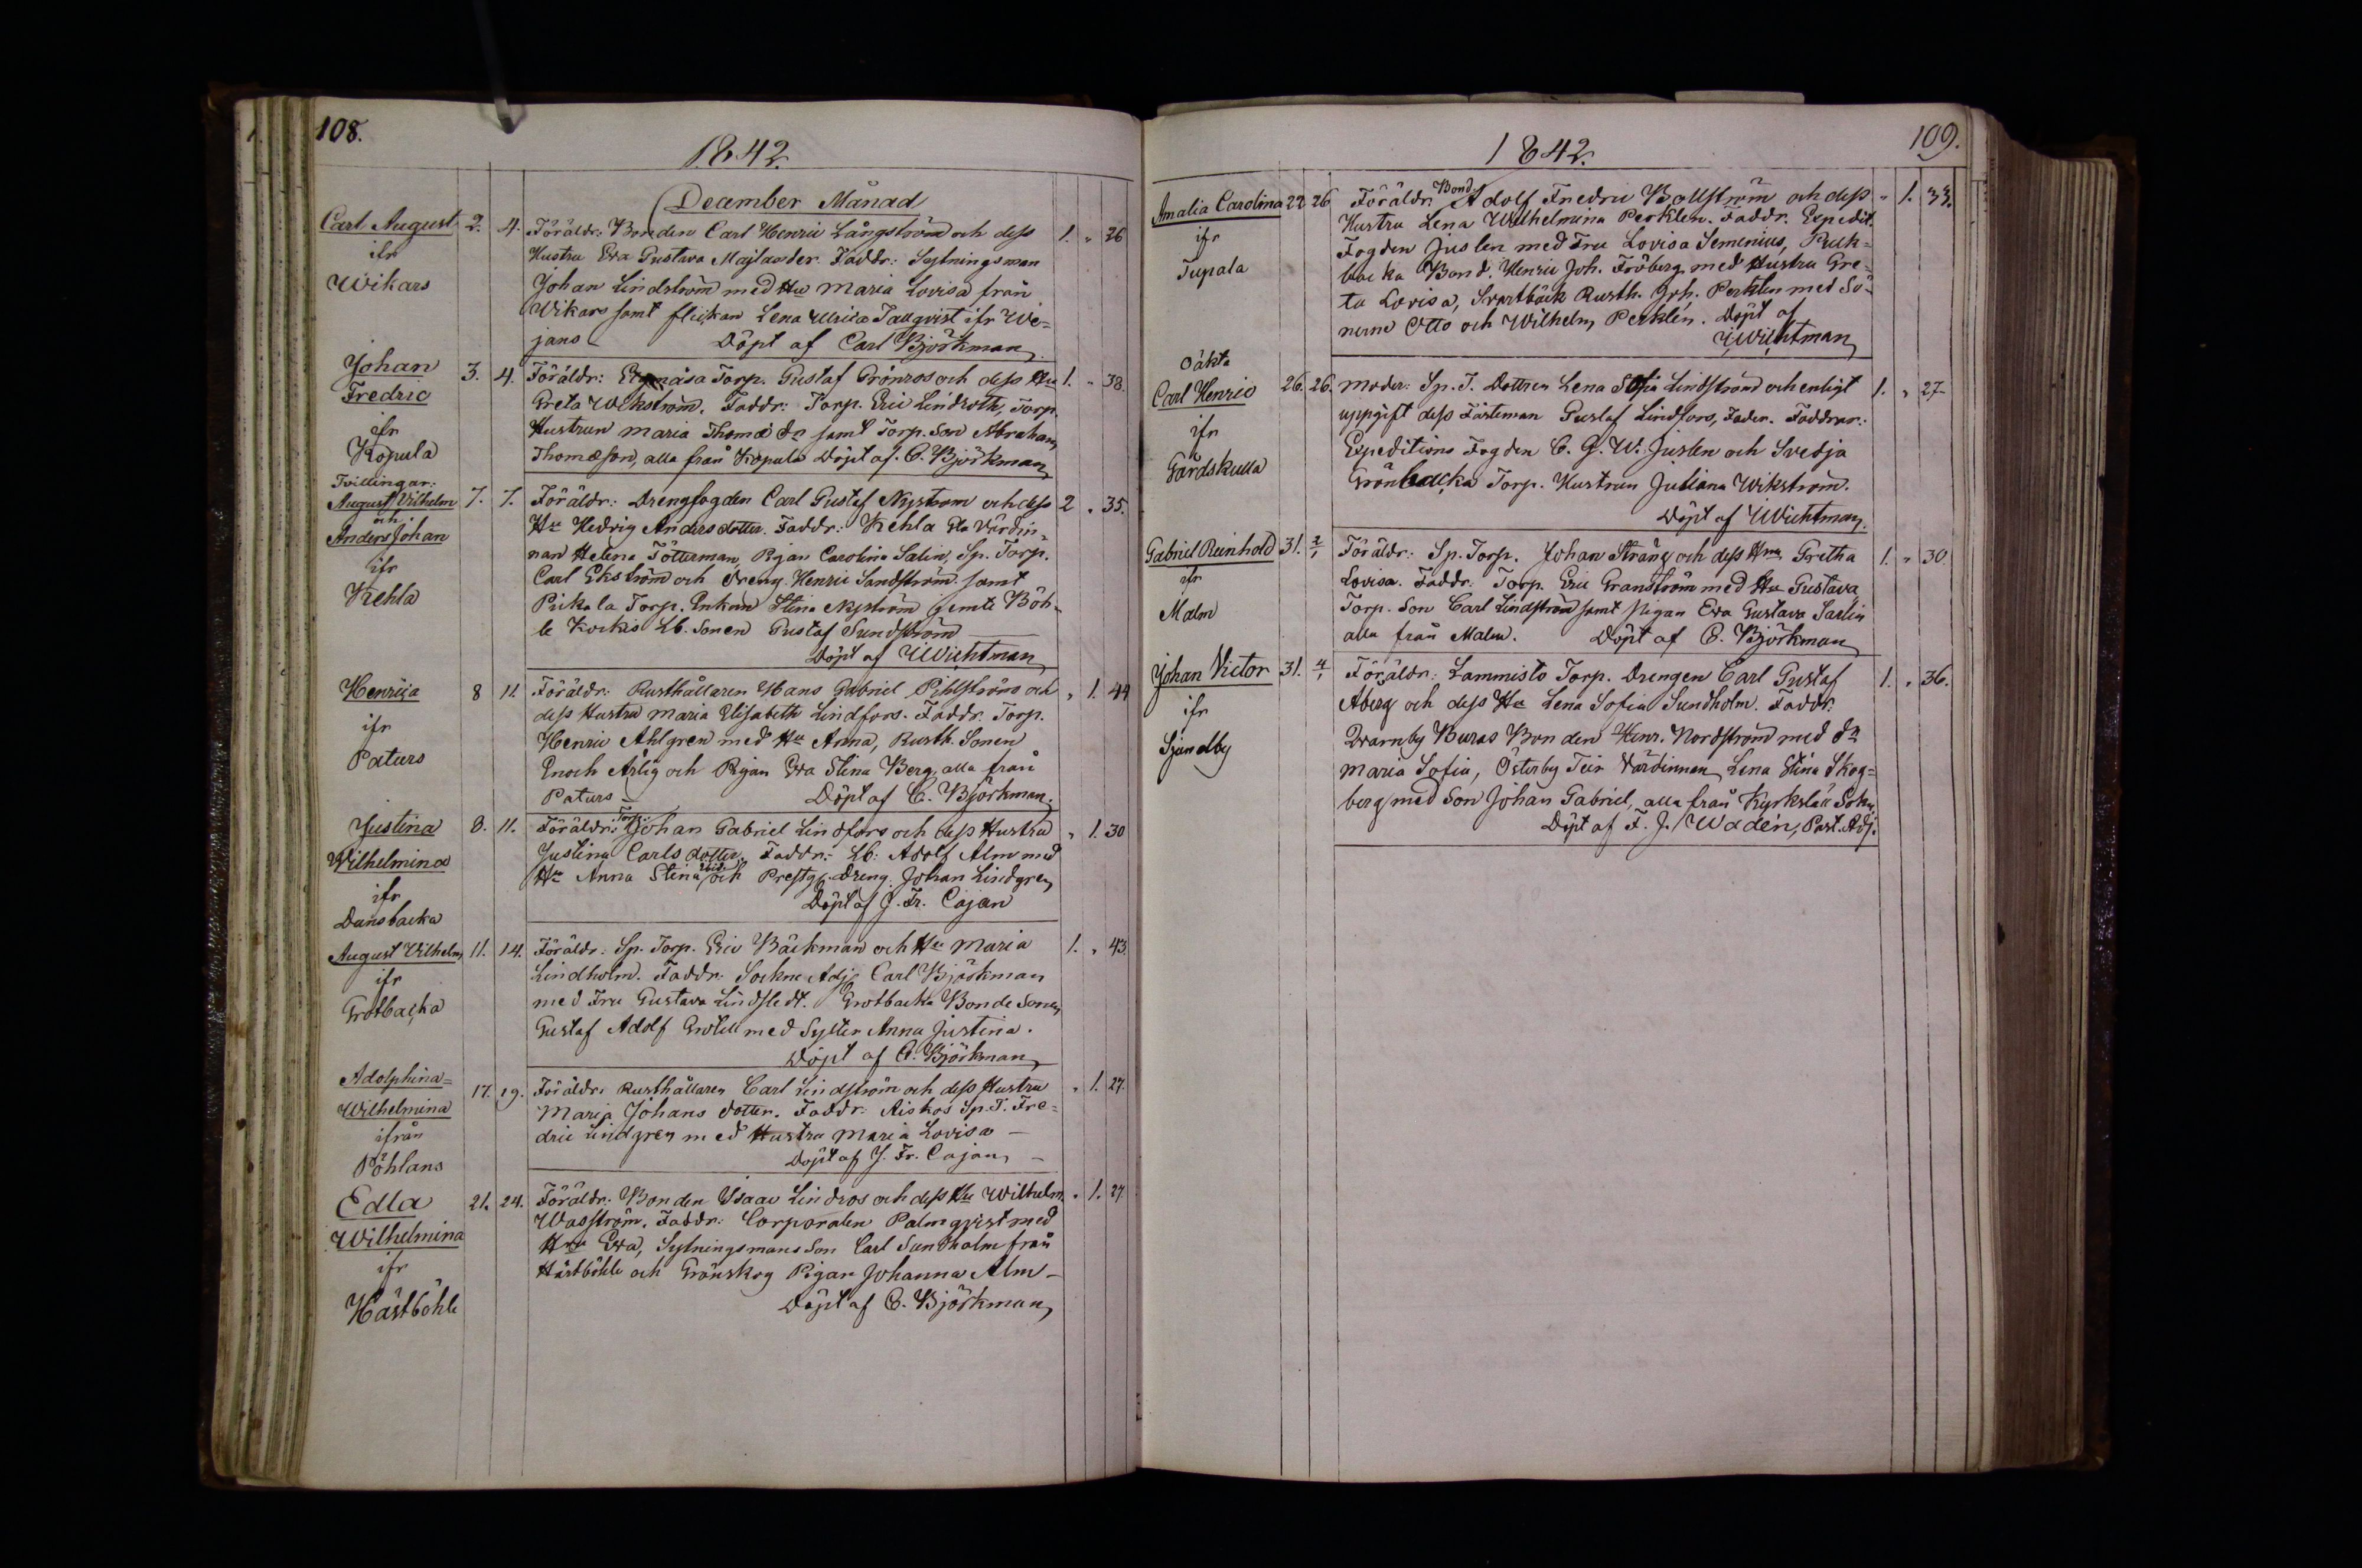 108.
1842.
December Månad
Carl August 2. 4. Föräldr: Bonden Carl Henric Långström och dess 1. " 26
ifr Hustru Eva Gustava Majlander. Faddr: Sytningsman
Wikars Johan Lindström med Hu Maria Lovisa från
Wikars samt flickan Lena Ulrica Tallqvist ifr We=
jans Döpt af Carl Björkman
Johan 3. 4. Föräldr: Torp. Gustaf Grönros och dess Hu 1. " 38.
Fredric Greta Wekström. Faddr: Torp. Eric Lindroth, Torp.
ifr Hustrun Maria Thomæ dr samt Torp. Son Abraham
Kopula Thomæson, alla från Kopula Döpt af C. Björkman
Tvillingar:
August Vilhelm 7. 7. Föräldr: Drengfogden Carl Gustaf Nyström och dess 2 " 35.
och
Anders Johan Hu Hedvig Anders dotter. Faddr: Kehla Värdin=
ifr nan Helena Tötterman, Pigan Carolina Salin, Sp. Torp.
Kehla Carl Ekström och dreng. Henric Sandström samt
Pickala Torp. Enkan Stina Nyström jemte Böh=
le Kockis Lb. Sonen Gustaf Sundström
Döpt af Wichtman
Henrica 8 11. Föräldr: Rusthållaren Hans Gabriel Pihlström och " 1. 44
ifr dess Hustru Maria Elisabeth Lindfors. Faddr. Torp.
Paturs Henric Ahlgren med Hu Anna, Rusth. Sonen
Enoch Arlig och Pigan Eva Stina Berg, alla från
Paturs Döpt af C. Björkman.
Justina 8. 11. Föräldr: Torp. Johan Gabriel Lindfors och dess Hustru " 1. 30
Wilhelmina Justina Carls dotter. Faddr: Lb: Adolf Alm med
ifr Hu Anna Stina och Prestg. dreng. Johan Lindgren
Dansbacka Döpt af J. Fr. Cajan
August Vilhelm 11. 14. Föräldr: Sp. Torp. Eric Bäckman och Hu Maria 1. " 43.
ifr Lindholm. Faddr: Sockne Adj. Carl Björkman
Grotbacka med Fru Gustava Lindstedt. Grotbacka Bonde Sonen
Gustaf Adolf Grotell med Syster Anna Justina.
Döpt af C. Björkman
Adolphina= 17. 19. Föräldr: Rusthållaren Carl Lindström och dess Hustru " 1. 27.
Wilhelmina Maria Johans dotter. Faddr: Aiskos Sp. T. Fre=
ifrån dric Lindgren med Hustru Maria Lovisa
Pöhlans Döpt af J. Fr. Cajan
Edla 21. 24. Föräldr: Bonden Isaac Lindros och dess Hu Wilhelm. " 1. 27.
Wilhelmina Wasström. Faddr: Corporalen Palmqvist med
ifr Hru Eva, Sytningsmans Son Carl Sundholm från
Hästböhle Hästböhle och Grönskog Pigan Johanna Alm
Döpt af C. Björkman
109.
1842.
Amalia Carolina 22 26 Föräldr. Bond. Adolf Fredric Bollström och dess " 1. 33.
ifr Hustru Lena Wilhelmina Perklén. Faddr. Expedit.
Tupala Fogden Juslen med Fru Lovisa Semenius, Puck=
backa Bond. Henric Joh. Fröberg med Hustru Gre=
ta Lovisa, Svartbäck Rusth. Joh. Perklén med Sö=
nerne Otto och Wilhelm Perklén. Döpt af
Wichtman
Oäkta
Carl Henric 26. 26. Moder: Sp. T. Dottren Lena Sofia Lindström och enligt 1. " 27
ifr uppgift dess Fästeman Gustaf Lindfors, Fader. Faddrar:
Gårdskulla Expeditions Fogden C. G. W. Juslen och Svedja
Grönbacka Torp. Hustrun Juliana Wikström.
Döpt af Wichtman.
Gabriel Reinhold 31. 2/1 Föräldr: Sp. Torp. Johan Sträng och dess Hru Gretha 1. " 30.
ifr Lovisa. Faddr: Torp. Eric Granström med Hu Gustava
Malm Torp. Son Carl Lindström samt Pigan Eva Gustava Sarlin
alla från Malm. Döpt af C. Björkman
Johan Victor 31. 4/1 Föräldr: Lammisto Torp. Drengen Carl Gustaf 1. " 36.
ifr Åberg och dess Hu Lena Sofia Sundholm. Faddr:
Sjundby Qvarnby Buras Bonden Henr. Nordström med dr
Maria Sofia, Österby Teir Värdinnan Lena Stina Skog=
berg med Son Johan Gabriel, alla från Kyrkslätt Sokn
Döpt af F. J. Wadén, Past. Adj.